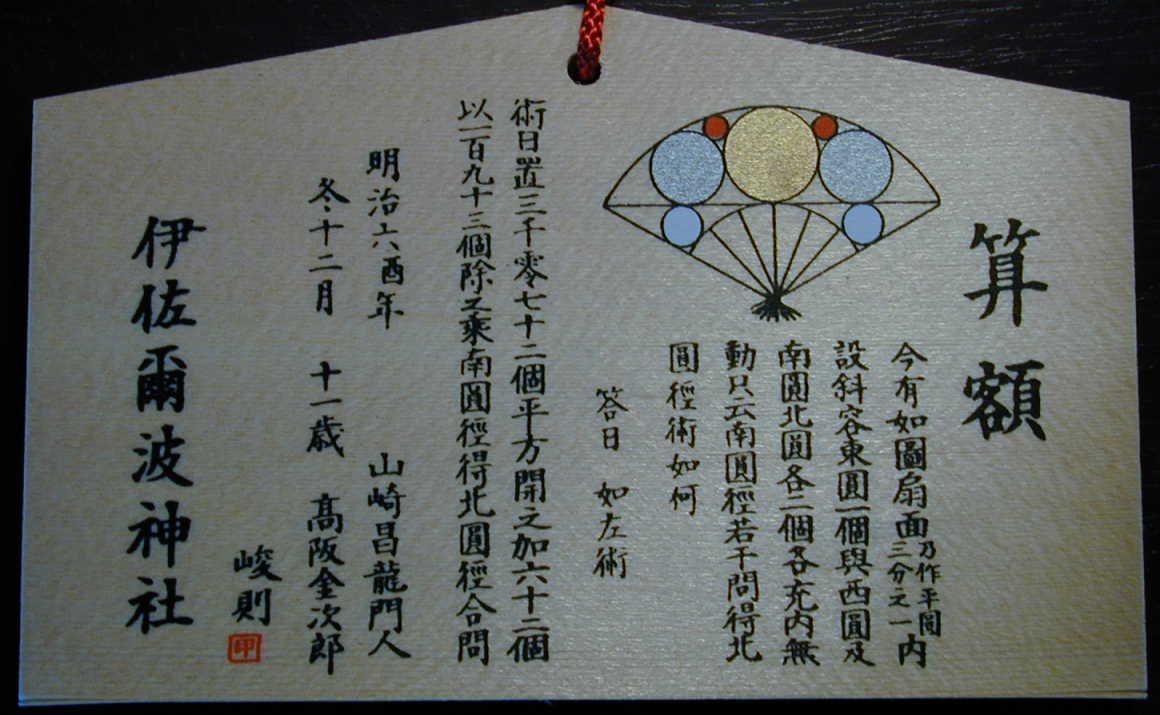 算額
今有如圖扇面乃作平圓三分之一内
設斜容東圓一個與西圓及
南圓北圓各二個各充内無
動只云南圓徑若干問得北
圓徑術如何
答曰 如左術
術曰置三千零七十二個平方開之加六十二個
以一百九十三個除之乘南圓徑得北圓徑合問
明治六酉年 山崎昌龍門人
冬十二月 十一歳 高阪金次郎
峻則
印
伊佐爾波神社